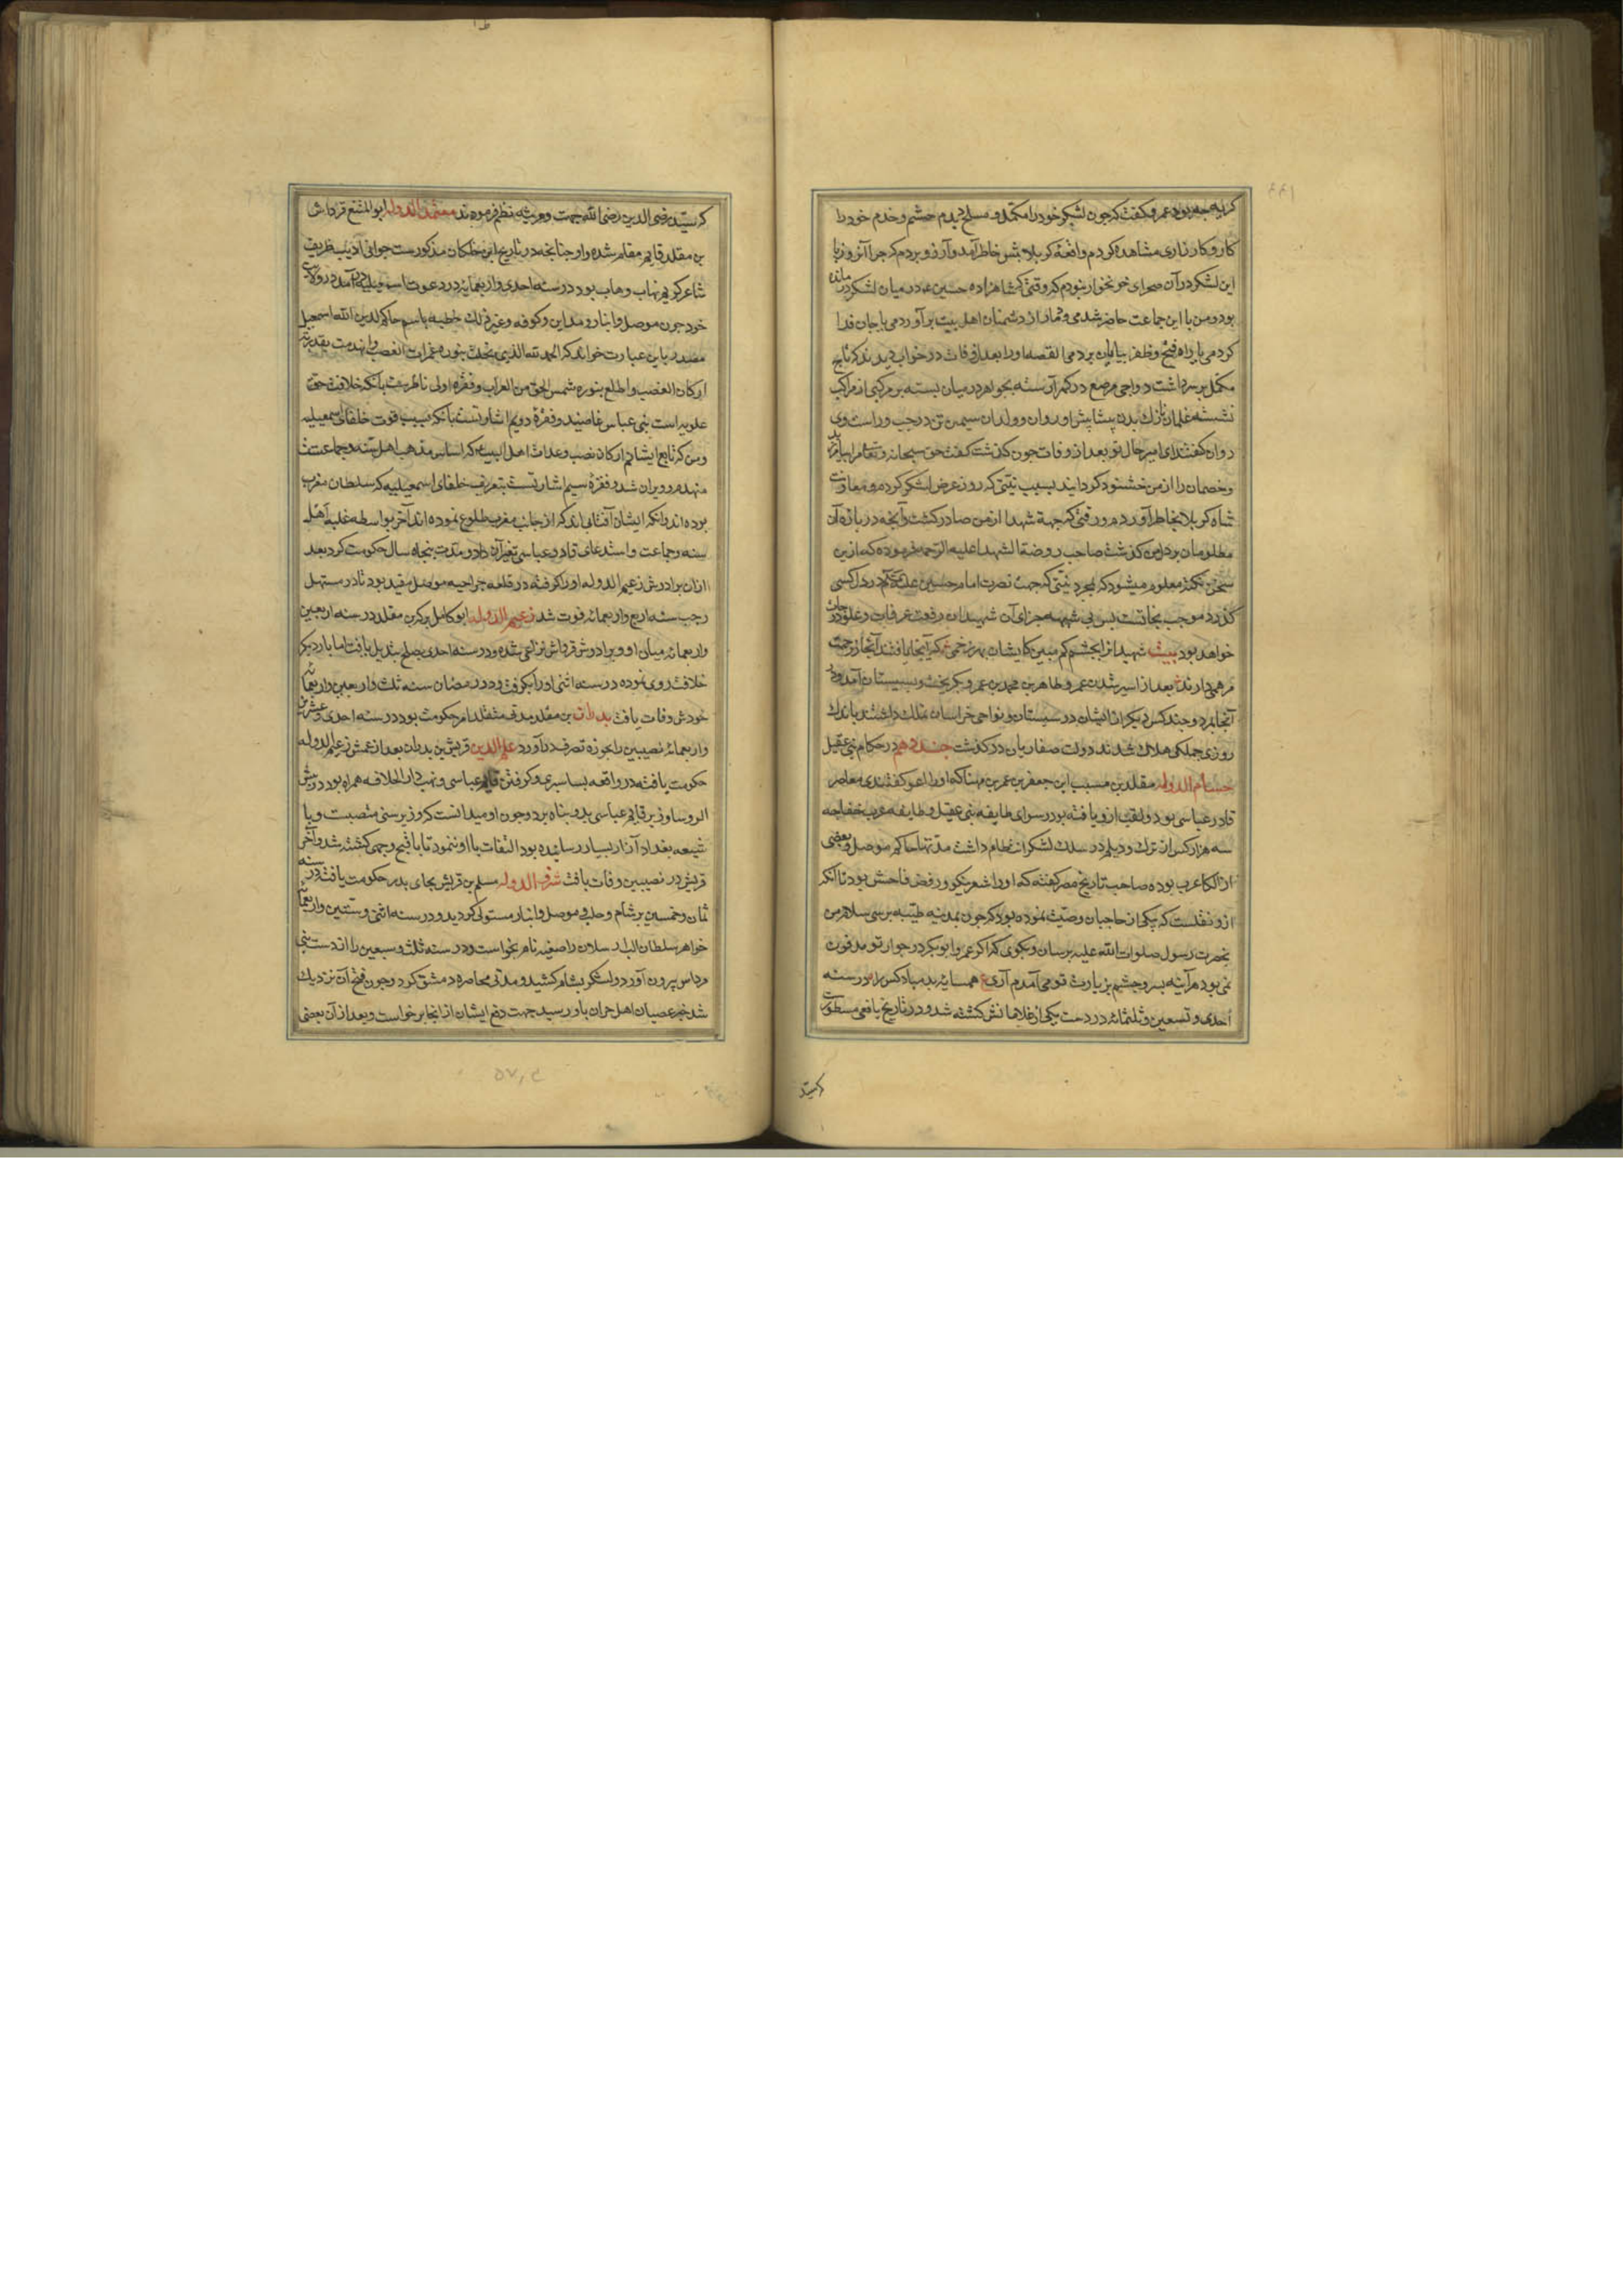 کریه چه بود عمرو کفت که چون لشکر خود را مکمل و مسلح دیدم حشم و خدم خود را
کار و کارزاری مشاهده کردم واقعهٔ کربلا بیش خاطر آمد و آرزو بردم که چرا آنروز با
این لشکر در آن صحرای خونخوار نبودم که وقتی که شاهزاده حسین در میان لشکر در مانده
بود و من با این جماعت حاضر شدمی و دمار از دشمنان اهل بیت برآوردمی یا جان فدا
کردمی یا راه فتح و ظفر بپایان بردمی القصه او را بعد از وفات در خواب دیدند که تاج
مکلل بر سر داشت دواجی مرصع در کمر آراسته بجواهر در میان بسته بر مرکبی از مراکب
نشسته غلمان نازک بدن پیشاپیش او روان و ولدان سیمین تن در چپ و راست وی
دوان کفتند ای امیر حال تو بعد از وفات چون کذشت کفت حق سبحانه و تعالی مرا بیامرزید
و خصمان را از من خشنود کردانید بسبب نیتی که روز عرض لشکر کردم و معاونت
شاه کربلا بخاطر آوردم و رقتی که جهة شهدا از من صادر کشت و آنچه در باره آن
مظلومان بر دل من کذشت صاحب روضة الشهدا علیه الرحمه فرموده که ازین
سخن نکته معلوم میشود که بمجرد نیتی که جهت نصرت امام حسین علیه السلام در دل کسی
کذرد موجب نجاتست پس بی شبهه جزای آن شهیدان رفعت غرفات و علو درجات
خواهد بود بیت شهیدانرا بچشم کم مبین کایشان بهر زخمی که آنجا یافتند آنجا ز رحمت
مرهمی دارند بعد از اسیر شدن عمرو طاهر بن محمد بن عمرو بکریخت و بسیستان آمد و در
آنجا بمرد و چند کس دیکر از ایشان در سیستان و نواحی خراسان ملک داشتند باندک
روزی جملکی هلاک شدند دولت صفاریان درکذشت جند دهم در حکام بنی عقیل
حسام الدوله مقلد بن مسیب ابن جعفر بن عمر بن مهنا که او را اعور کفتندی معاصر
قادر عباسی بود و لقب ازو یافته بود و سوای طایفه بنی عقیل و طایفه عرب خفاجه
سه هزار کس از ترک و دیلم در سلک لشکر او انتظام داشت مدتها حاکم موصل و بعضی
از الکاء عرب بوده صاحب تاریخ مصر کفته که او را شعر نیکو و رفض فاحش بود تا آنکه
ازو نقلست که یکی از حاجیان وصیت نموده بود که چون بمدینه طیبه برسی سلام من
بحضرت رسول صلوات الله علیه برسان و بکوی که اکر عمر و ابوبکر در جوار تو مدفون
نمی بود هر آینه بسر و چشم بزیارت تو می آمدم آری ع همسایه بد مباد کس را و در سنه
احدی و تسعین و ثلثمائه در دست یکی از غلامانش کشته شد و در تاریخ یافعی مسطورست
که سید
که سید رضی الدین رضی الله جهت وی مرثیه نظم فرموده اند معتمد الدوله ابو المنیع قرواش
بن مقلد قایم مقام شده و او چنانچه در تاریخ ابن خلکان مذکورست جوانی ادیب ظریف
شاعر کریم نهاب وهاب بود در سنه احدی و اربعمائه در دعوت اسمعیلیه در آمد در ولایت
خود چون موصل و انبار و مداین و کوفه و غیر ذلک خطبه باسم حاکم لدین الله اسمعیل
مصدر باین عبارت خواند که الحمد لله الذی انجلت بنوره غمرات الغضب و انهدمت بقدرته
ارکان الغضب و اطلع بنوره شمس الحق من الغراب و فقره اولی ناظرست بآنکه خلافت حق
علویه است بنی عباس غاصبند و فقرهٔ دویم اشارتست بآنکه بسبب قوت خلفای اسمعیلیه
و من که تابع ایشانم ارکان نصب و عداوت اهل البیت که اساس مذهب اهل سنه و جماعتست
منهدم و ویران شد و فقرهٔ سیم اشارتست بتعریف خلفای اسمعیلیه که سلطان مغرب
بوده اند و آنکه ایشان آفتابی اند که از جانب مغرب طلوع نموده اند آخر بواسطه غلبه اهل
سنه و جماعت و استدعای قادر عباسی تغیر آن داد و مدت پنجاه سال حکومت کرد بعد
ازان برادرش زعیم الدوله او را کرفته در قلعه جراحیه موصل مقید بود تا در مستهل
رجب سنه اربع و اربعمائه فوت شد زعیم الدوله ابو کامل برکه بن مقلد در سنه اربعین
و اربعمائه میان او و برادرش قرواش نزاعی شده و در سنه احدی بصلح تبدیل یافت اما بار دیکر
خلافت روی نموده در سنه اثنی او را بکرفت و در رمضان سنه ثلث و اربعین و اربعمائه
خودش وفات یافت بدران بن مقلد مدتی متقلد امر حکومت بود در سنه احدی و عشرین
و اربعمائه نصیبین را بحوزه تصرف درآورد علم الدین قریش بن بدران بعد از عمش زعیم الدوله
حکومت یافته در واقعه بساسیری و کرفتن قایم عباسی و نهب دار الخلافه همراه بود و رئیس
الروسا وزیر قایم عباسی بدو پناه برد و چون او میدانست که وزیر سنی متعصبست و با
شیعه بغداد آزار بسیار رسانیده بود التفات باو ننمود تا باقبح وجهی کشته شد و آخر
قریش در نصیبین وفات یافت شرف الدوله مسلم بن قریش بجای پدر حکومت یافته در سنه
ثمان و خمسین بر شام و حلب و موصل و انبار مستولی کردید و در سنه اثنی و ستین و اربعمائه
خواهر سلطان الب ارسلان را صفیه نام بخواست و در سنه ثلث و سبعین را از دست بنی
مرداس بیرون آورد و لشکر بشام کشید و مدتی محاصره دمشق کرد و چون فتح آن نزدیک
شد خبر عصیان اهل حران باو رسید جهت دفع ایشان از انجا برخواست و بعد از آن بعضی